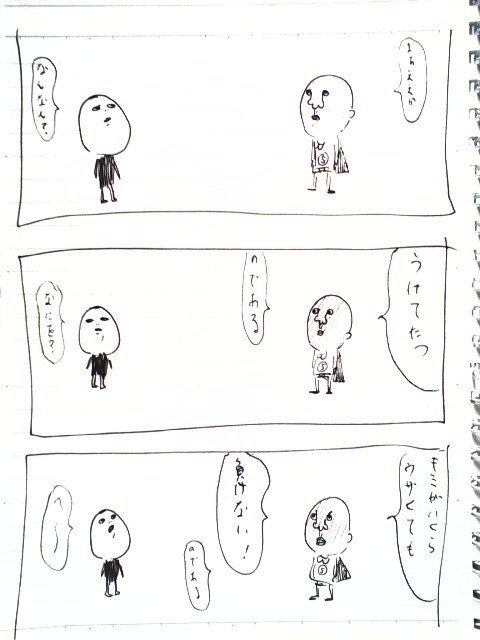 まあええか
なんなんで?
うけてたつ
のである
なにを?
キミがいくら
ウザくても
負けない!
のである
へ〜